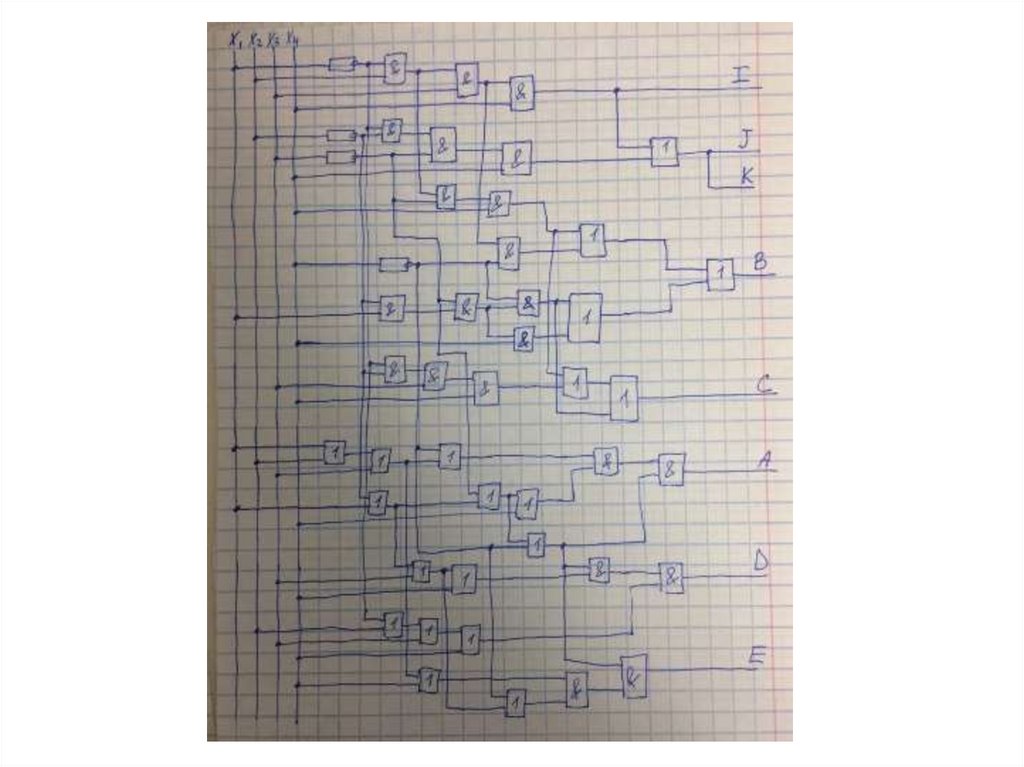 X₁ X₂ X₃ X₄
& & & I
& & & 1 J
K
& &
& 1 1 B
& & & 1
&
& & & 1 1 C
1 1 1 & & A
1 1 1
1
1 1 & & D
1 1 1
1 1 & & E